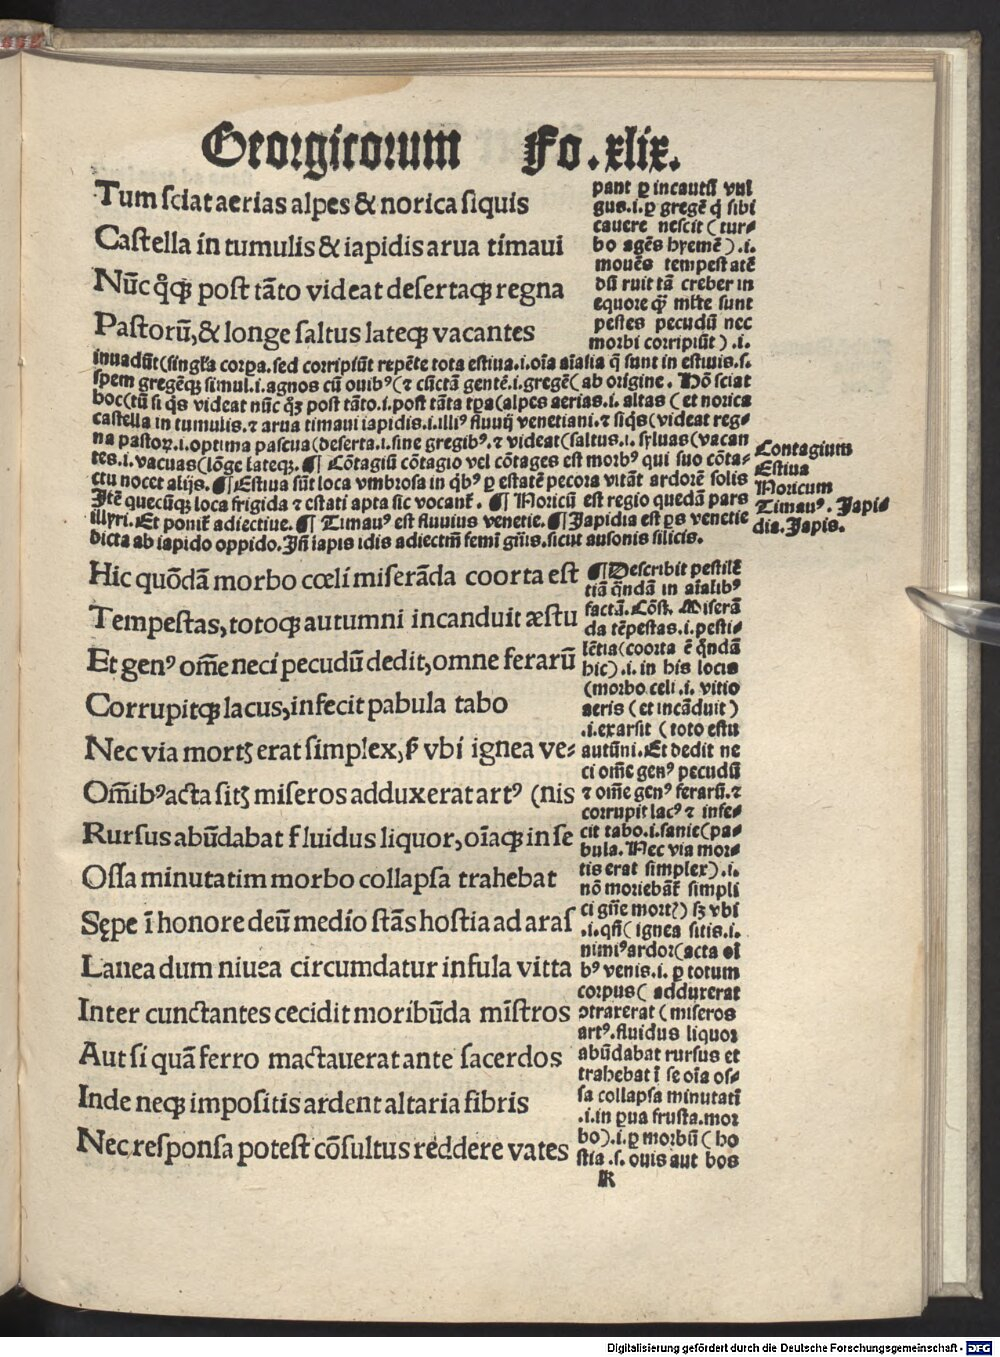 Georgicorum Fo. xlix.
Tum sciat aerias alpes & norica siquis
Castella in tumulis & iapidis arua timaui
Nūc qͦqꝫ post tāto videat desertaqꝫ regna
Pastorū, & longe saltus lateqꝫ vacantes
pant ꝑ incautū vul
gus .i. ꝑ gregē q̄ sibi
cauere nescit (tur⸗
bo agēs hyemē) .i.
mouēs tempestatē
dū ruit tā creber in
equore qͣꝫ mlte sunt
pestes pecudū nec
morbi corripiūt) .i.
inuadūt (singl'a corpa. sed corripiūt repēte tota estiua .i. oīa aīalia q̄ sunt in estiuis .s.
spem gregēqꝫ simul .i. agnos cū ouibꝰ (⁊ cūctā gentē .i. gregē (ab origine. Hō sciat
hoc (tū si qͥs videat nūc qͦꝫ post tāto .i. post tāta tꝑa (alpes aerias .i. altas (et norica
castella in tumulis. ⁊ arua timaui iapidis .i. illiꝰ fluuij venetiani. ⁊ siqͥs (videat reg⸗
na pastoꝝ .i. optima pascua (deserta .i. sine gregibꝰ. ⁊ videat (saltus .i. syluas (vacan
tes .i. vacuas (lōge lateqꝫ. ¶ Cōtagiū cōtagio vel cōtages est morbꝰ qui suo cōta⸗
ctu nocet alijs. ¶ Estiua sūt loca vmbrosa in qͥbꝰ ꝑ estatē pecora vitāt ardorē solis
Itē quecūqꝫ loca frigida ⁊ estati apta sic vocant̄. ¶ Noricū est regio quedā pars
illyri. Et ponit̄ adiectiue. ¶ Timauꝰ est fluuius venetie. ¶ Iapidia est ꝑs venetie
dicta ab iapido oppido. Iñ iapis idis adiectm̄ femi gñis. sicut ausonis silicis.
Contagium
Estiua
Noricum
Timauꝰ. Japi⸗
dia. Japis.
Hic quōdā morbo cœli miserāda coorta est
Tempestas, totoqꝫ autumni incanduit æstu
Et genꝰ om̄e neci pecudū dedit, omne ferarū
Corrupitqꝫ lacus, infecit pabula tabo
Nec via mortꝫ erat simplex, ẜ vbi ignea ve⸗
Om̄ibꝰ acta sitꝫ miseros adduxerat artꝰ (nis
Rursus abūdabat fluidus liquor, oīaqꝫ in se
Ossa minutatim morbo collapsa trahebat
Sępe ī honore deū medio stās hostia ad aras
Lanea dum niuea circumdatur infula vitta
Inter cunctantes cecidit moribūda mīstros
Aut si quā ferro mactauerat ante sacerdos
Inde neqꝫ impositis ardent altaria fibris
Nec responsa potest cōsultus reddere vates
¶ Describit pestilē
tiā qͣndā in aīalibꝰ
factā. Cōst. Miserā
da tēpestas .i. pesti⸗
lētia (coorta ē qͣndā
hic) .i. in his locis
(morbo celi .i. vitio
aeris (et incāduit)
.i. exarsit (toto estu
autūni. Et dedit ne
ci om̄e genꝰ pecudū
⁊ om̄e genꝰ ferarū. ⁊
corrupit lacꝰ ⁊ infe⸗
cit tabo .i. sanie (pa⸗
bula. Nec via mor⸗
tis erat simplex) .i.
nō moriebāt̄ simpli
ci gñe mortꝭ) sꝫ vbi
.i. qñ (ignea sitis .i.
nimiꝰ ardor (acta oī
bꝰ venis .i. ꝑ totum
corpus (adduxerat
ↄtraxerat (miseros
artꝰ. fluidus liquor
abūdabat rursus et
trahebat ī se oīa os⸗
sa collapsa minutatī
.i. in ꝑua frusta. mor
bo) .i. ꝑ morbū (ho
stia .s. ouis aut bos
K
Digitalisierung gefördert durch die Deutsche Forschungsgemeinschaft - DFG